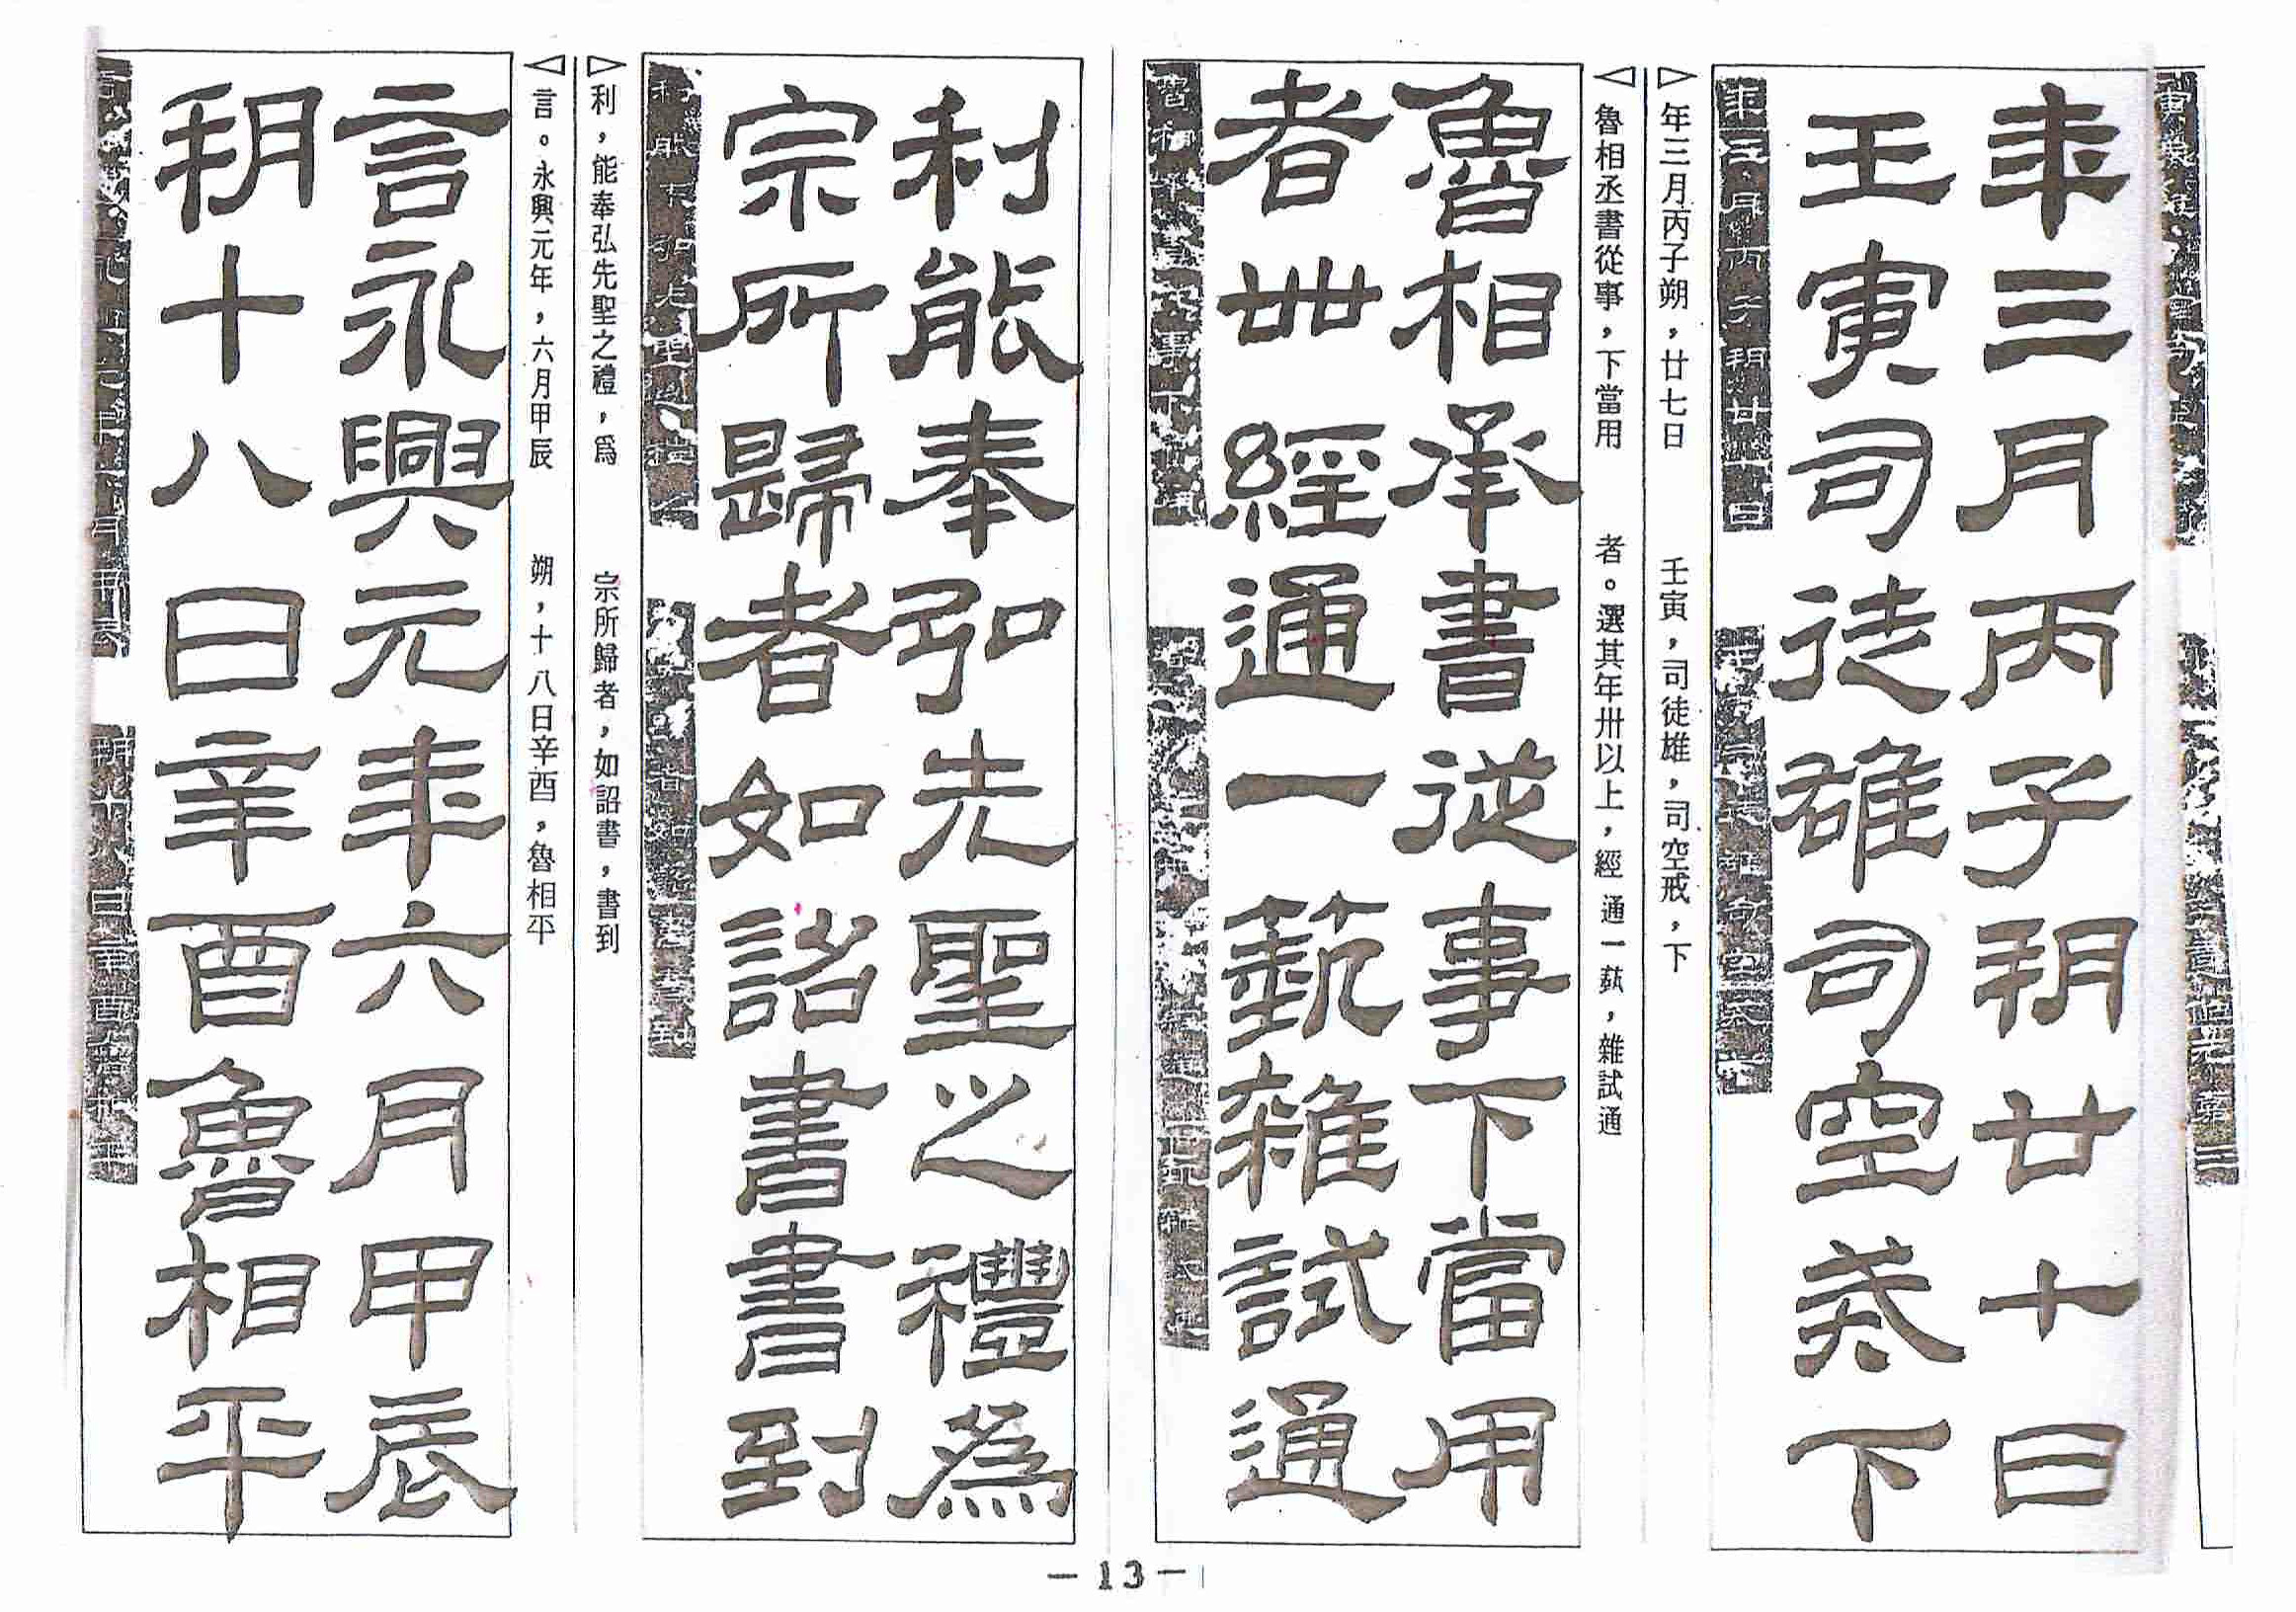 年三月丙子朔廿七日
壬寅司徒雄司空戒下
年三月丙子朔，廿七日　壬寅，司徒雄，司空戒，下
魯相丞書從事，下當用　者。選其年卅以上，經通一蓺，雜試通
魯相承書從事下當用
者卌經通一藝雜試通
利能奉弘先聖之禮爲
宗所歸者如詔書書到
利，能奉弘先聖之禮，爲　宗所歸者，如詔書，書到
言。永興元年，六月甲辰　朔，十八日辛酉，魯相平
言永興元年六月甲辰
朔十八日辛酉魯相平
－13－